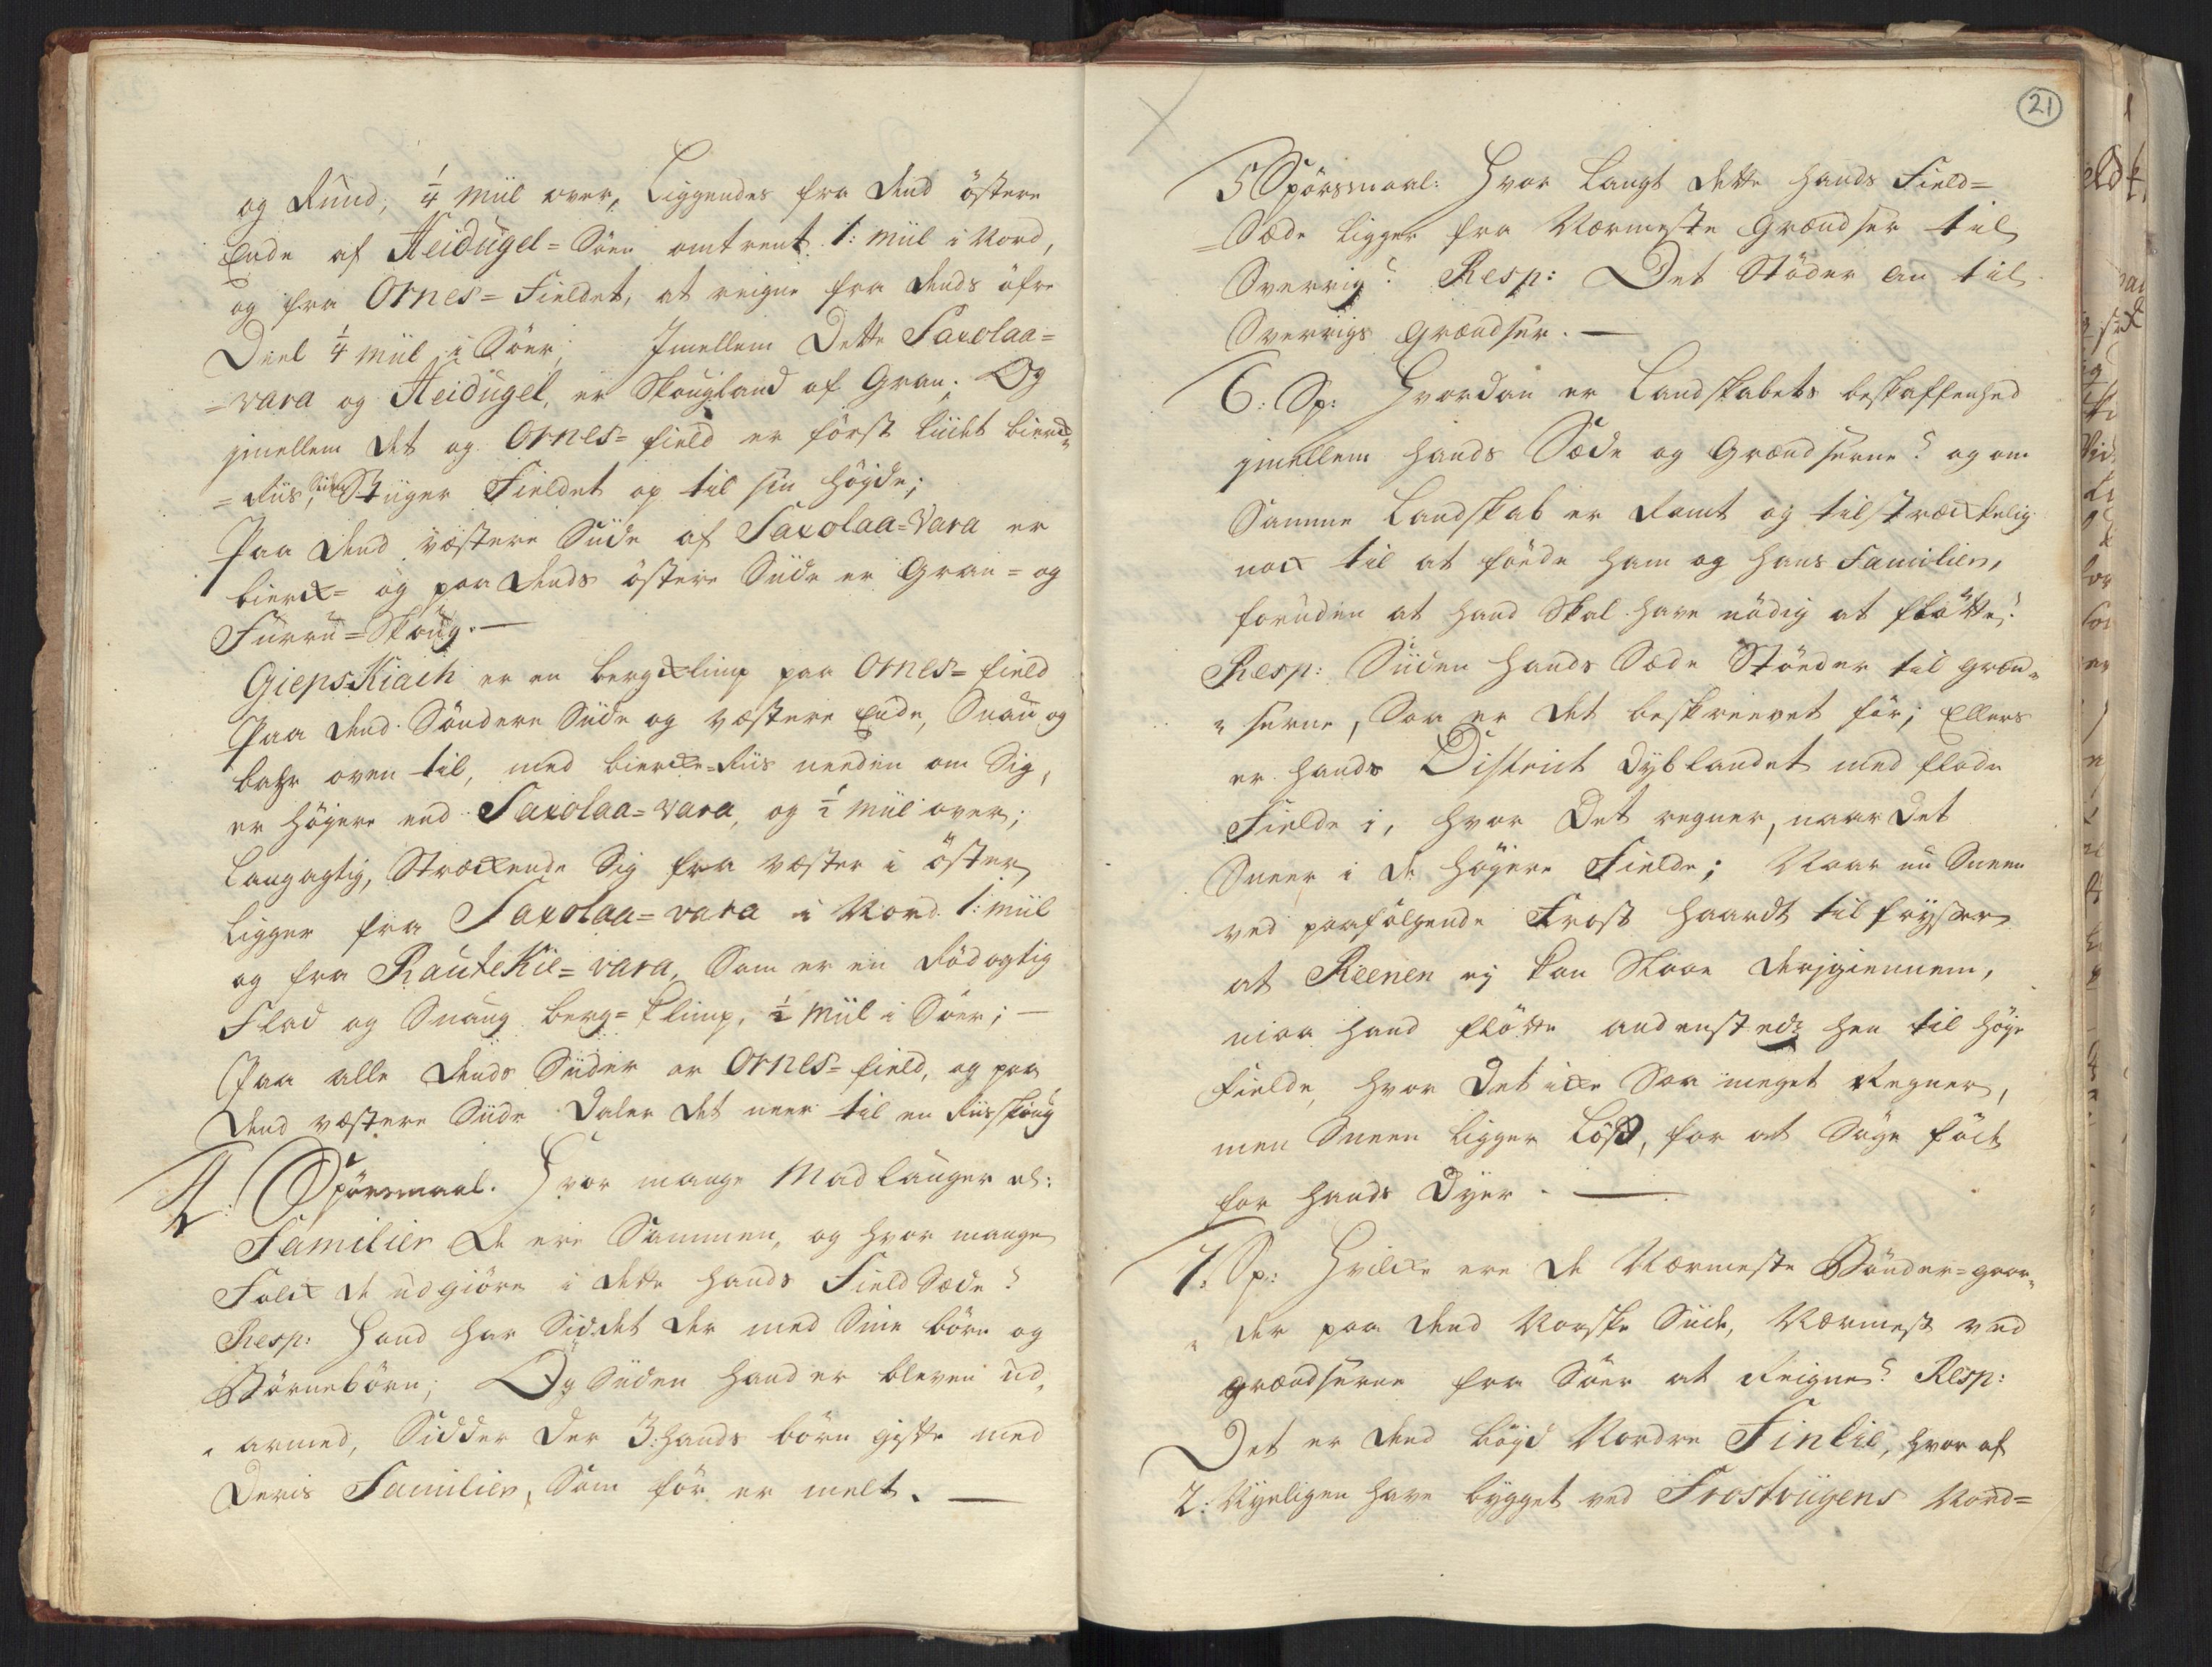 og Rund, 1/4 Miil over, Liggendes fra dend östere
Ende af Heidugel=Söen omtrent 1: Miil i Nord,
og fra Ornes=Fieldet, at reigne fra dends öfre
Deel 1/4 Miil i Söer; Imellem Dette Saxolaa=
=vara og Heidugel, er Skougland af Gran. Og
jmellem det og Ornes=field er först Liidet bierck=
=Riis, siden Stiiger Fieldet op til sin Höyde;
Paa dend västere Siide af Saxolaa=Vara er
bierck= og paa dends östere Siide er Gran= og
Furru=Skoug.—
GiepsKiach er en bergklimp paa Ornes=field
Paa dend Söndere Siide og Västere Ende, Snau og
bahr oven til, med biercke=Riis needen om Sig,
er Höyere end Saxolaa=vara, og 1/2 Miil over;
Langagtig, Streckende Sig fra väster i öster
Ligger fra Saxolaa=vara i Nord 1: Miil
og fra RauteKie=vara, Som er en Rödagtig
Flad og Snaug berg=klimp, 1/2 Miil i Söer;—
Paa alle dends Siider er Ornes=field, og paa
dend västere Siide daler det neer til en Riisskoug
4: Spörsmaal. Hvor mange Madlauger el:
Familier de ere Sammen, og hvor mange
Folck de udgiöre i dette hands Field Sæde?
Resp: Hand har Siddet der med Sine börn og
Börnebörn; Og Siiden hand er bleven ud=
armed, Sidder der 3: hands börn giftte med
Deris Familier, Som för er melt.—
21
5 Spörsmaal: Hvor Langt dette hands Field=
=Sæde Ligger fra Nærmeste Grændser til
Sverrig? Resp: Det Stöder an til
Sverrigs Grændser.—
6: Sp: Hvordan er Landskabets beskaffenhed
jmellem hands Sæde og Grændserne? og om
Samme Landskab er Ramt og tilstreckelig
nock til at föede ham og hans Familier,
foruden at hand Skal have nödig at flötte?
Resp: Siiden hands Sæde Stöeder til græn=
serne, Saa er det beskreevet för; Ellers
er hands District dyblandet med flade
Fielde i, hvor Det regner, naar det
Sneer i de höyere Fielde; Naar nu Sneen
ved paafölgende Frost haardt tilfryser
at Reenen ej kan Slaae derjgiennem,
maa hand flötte andensteds hen til höye
Fielde, hvor det icke Saa meget Regner,
men Sneen Ligger Lös, for at Söge föde
for hands dyer.—
7: Sp: Hvilcke ere de Nærmeste Bönder=gaar=
der paa dend Norske Siide, Nærmest ved
grændserne fra Söer at Reigne? Resp:
Det er dend Böyd Nordre Finlie, hvor af
2: Nyeligen have bygget ved Frostviigens Nord=